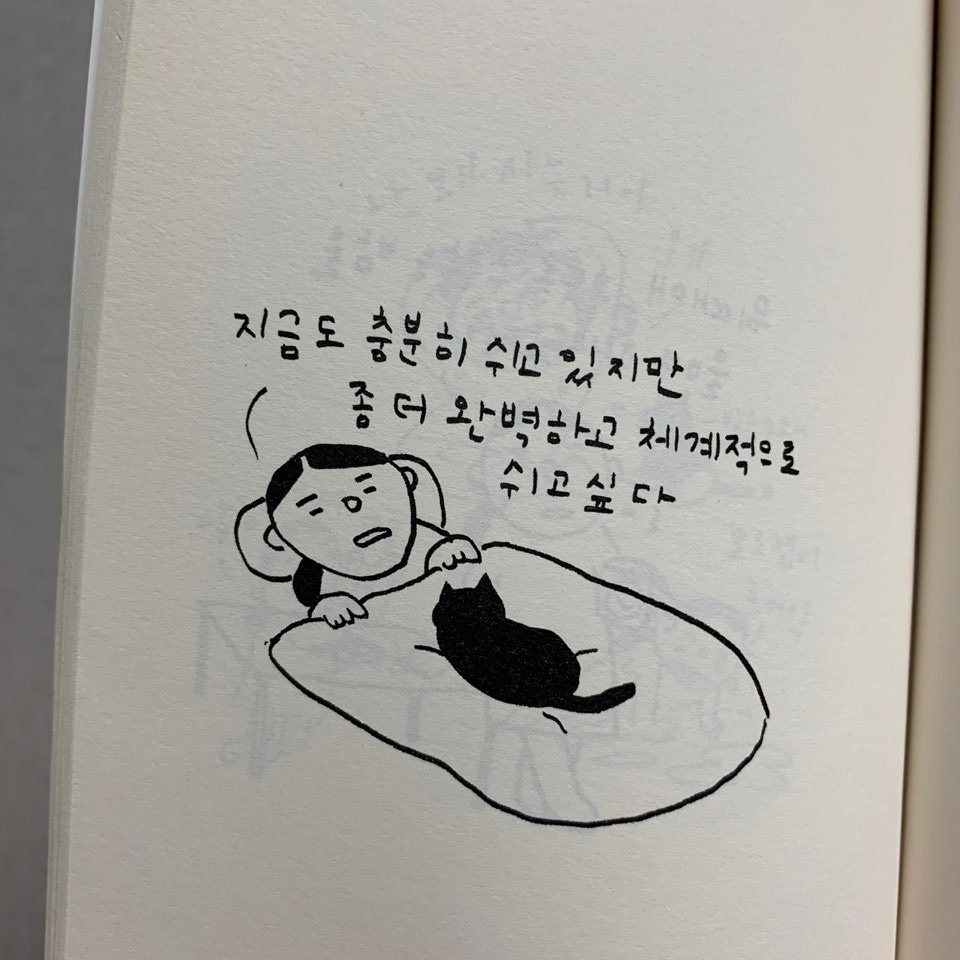 지금도 충분히 쉬고 있지만
좀 더 완벽하고 체계적으로
쉬고싶다